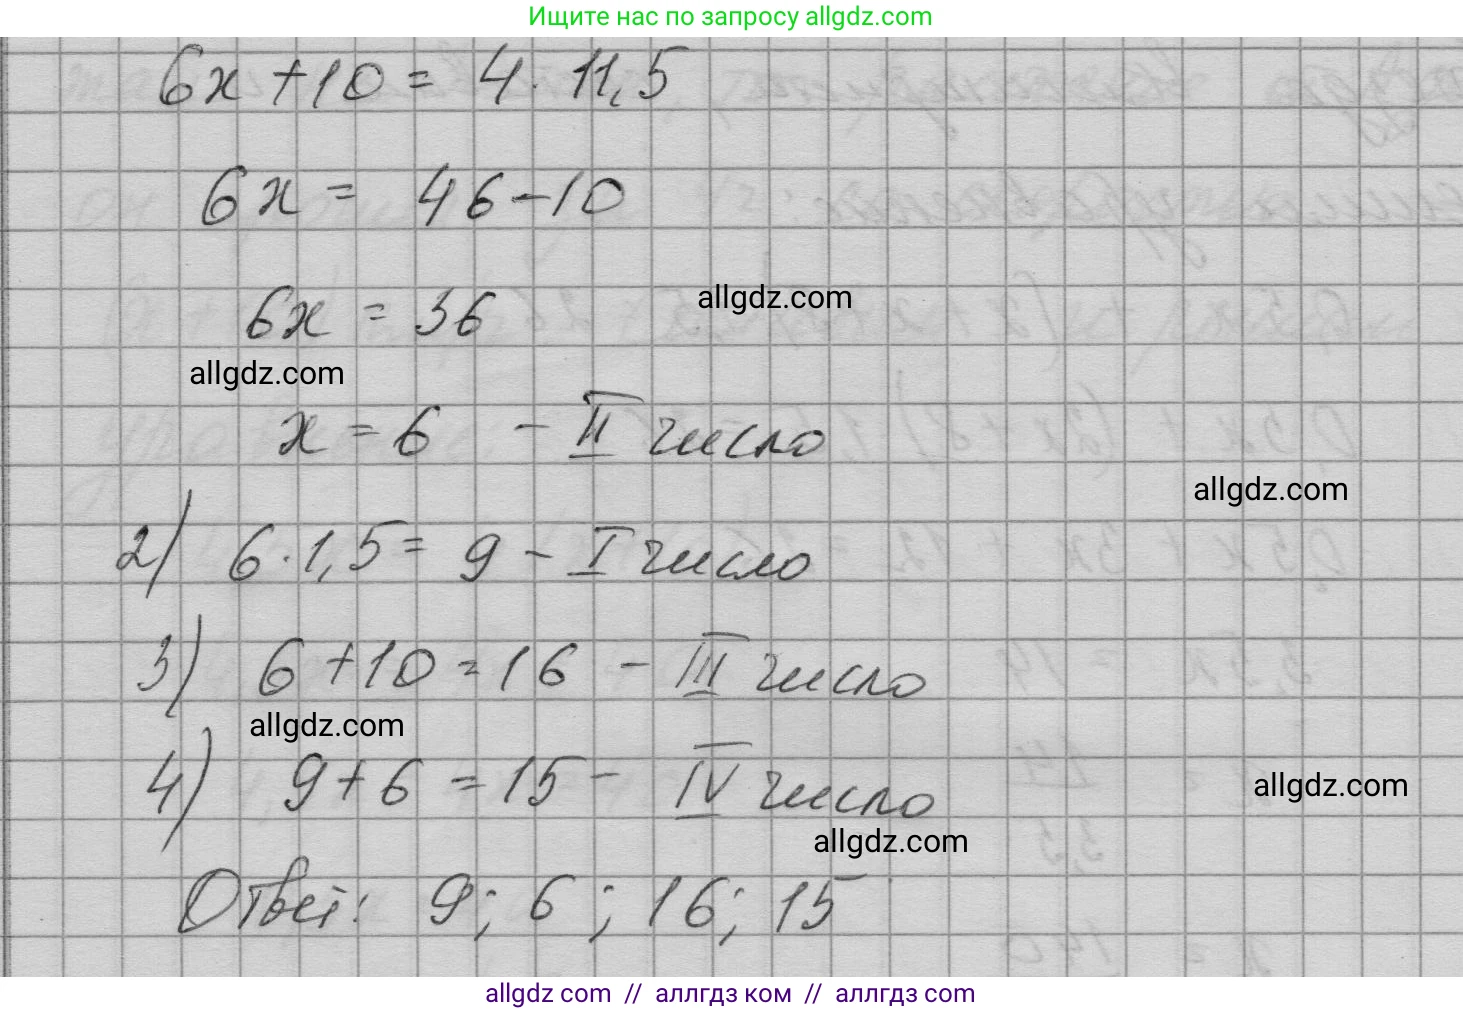 Ищите нас по запросу allgdz.com
6x + 10 = 4 · 11,5
6x = 46 - 10
allgdz.com
6x = 36
allgdz.com
x = 6 - II число
allgdz.com
2) 6 · 1,5 = 9 - I число
3) 6 + 10 = 16 - III число
allgdz.com
4) 9 + 6 = 15 - IV число
allgdz.com
allgdz.com
Ответ: 9; 6; 16; 15
allgdz com // аллгдз ком // allgdz com